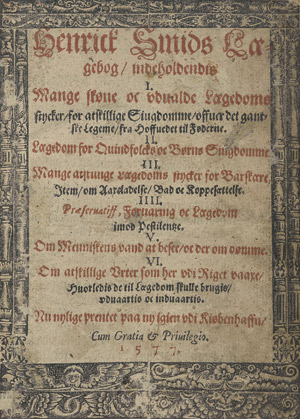 Henrick Smids Læ-
gebog / indeholdendis
I.
Mange skøne oc vdualde Lægedoms
stycker / for atskillige Siugdomme / offuer det gant-
ske Legeme / fra Hoffuedet til Føderne.
II.
Lægedom for Quindfolcks oc Børns Siugdomme
III.
Mange atztunge Lægedoms stycker for Bartskere
Item / om Aareladelse / Bad oc Koppesættelse.
IIII.
Præseruatiff, Foruaring oc Lægedom
imod Pestilentze.
V.
Om Menniskens vand at besee / oc der om dømme.
VI.
Om atskillige Vrter som her vdi Riget vaaxe /
Huorledis de til Lægedom skulle brugis /
vduaartis oc induaartis.
Nu nylige prentet paa ny igien vdi Kiøbenhaffn /
Cum Gratia & Priuilegio.
1577.